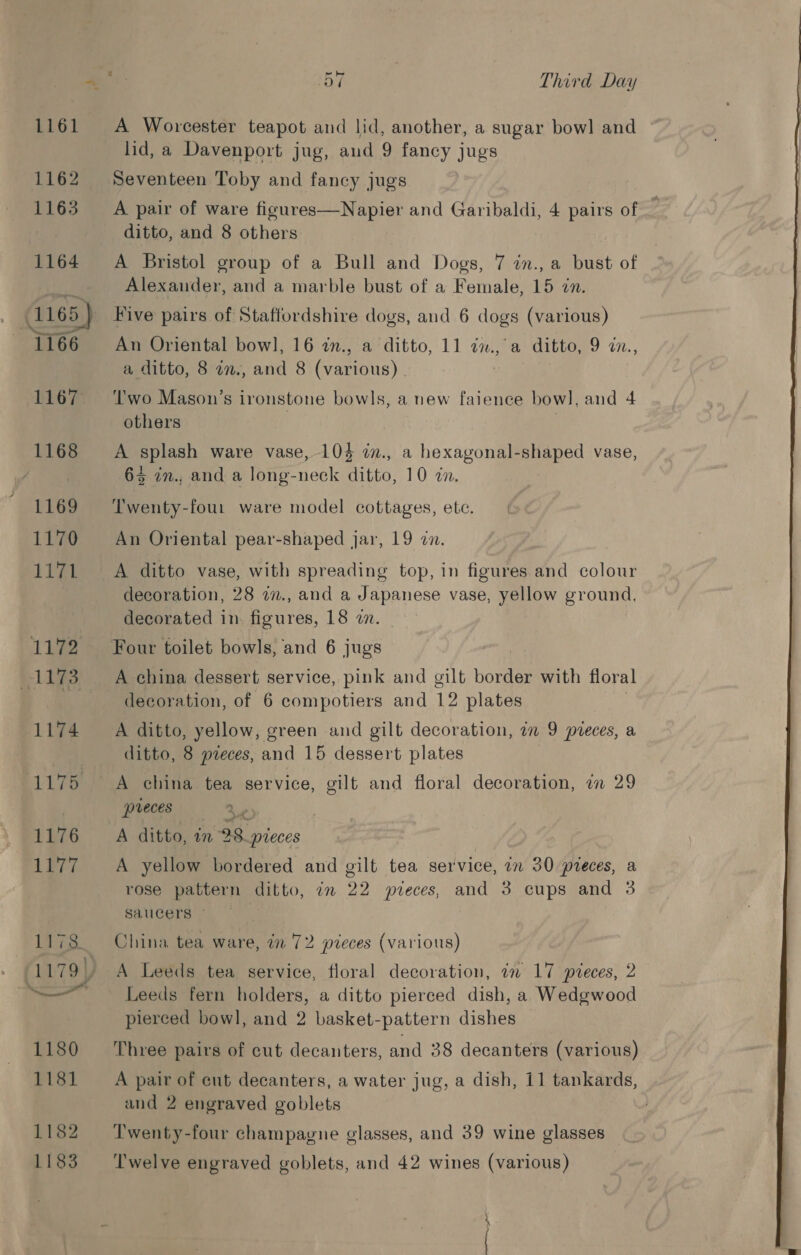 57 Third Day
1161 A Worcester teapot and lid, another, a sugar bowl and
lid, a Davenport jug, and 9 fancy jugs
1162 Seventeen Toby and fancy jugs
1163 A pair of ware figures—Napier and Garibaldi, 4 pairs of
ditto, and 8 others
1164 A Bristol group of a Bull and Dogs, 7 in., a bust of
Alexander, and a marble bust of a Female, 15 in.
1165 Five pairs of Staffordshire dogs, and 6 dogs (various)
1166 An Oriental bowl, 16 in., a ditto, 11 in., a ditto, 9 in.,
a ditto, 8 in., and 8 (various)
1167 Two Mason's ironstone bowls, a new faience bowl, and 4
others
1168 A splash ware vase, 10½ in., a hexagonal-shaped vase,
6½ in., and a long-neck ditto, 10 in.
1169 Twenty-four ware model cottages, etc.
1170 An Oriental pear-shaped jar, 19 in.
1171 A ditto vase, with spreading top, in figures and colour
decoration, 28 in., and a Japanese vase, yellow ground,
decorated in figures, 18 in.
1172 Four toilet bowls, and 6 jugs
1173 A china dessert service, pink and gilt border with floral
decoration, of 6 compotiers and 12 plates
1174 A ditto, yellow, green and gilt decoration, in 9 pieces, a
ditto, 8 pieces, and 15 dessert plates
1175 A china tea service, gilt and floral decoration, in 29
pieces
1176 A ditto, in 28 pieces
1177 A yellow bordered and gilt tea service, in 30 pieces, a
rose pattern ditto, in 22 pieces, and 3 cups and 3
saucers
1178 China tea ware, in 72 pieces (various)
1179 A Leeds tea service, floral decoration, in 17 pieces, 2
Leeds fern holders, a ditto pierced dish, a Wedgwood
pierced bowl, and 2 basket-pattern dishes
1180 Three pairs of cut decanters, and 38 decanters (various)
1181 A pair of cut decanters, a water jug, a dish, 11 tankards,
and 2 engraved goblets
1182 Twenty-four champagne glasses, and 39 wine glasses
1183 Twelve engraved goblets, and 42 wines (various)